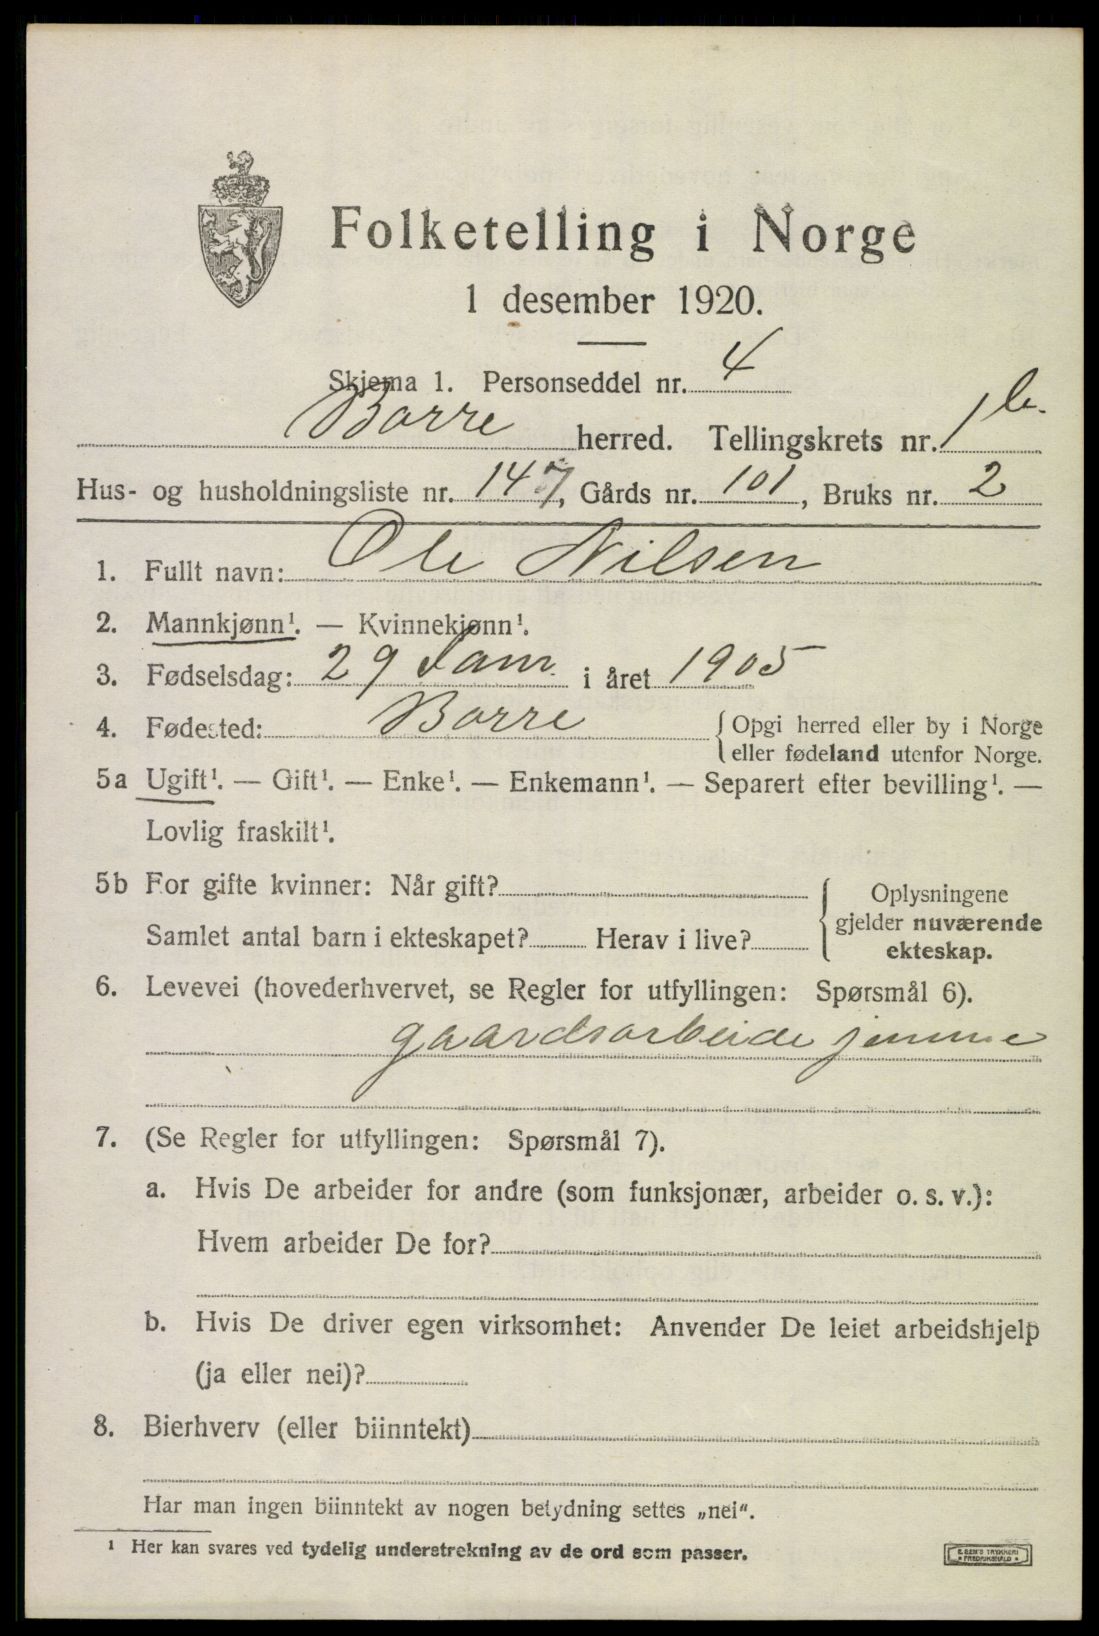 Folketelling i Norge
1 desember 1920.
Skjema 1. Personseddel nr. 4
Borre herred. Tellingskrets nr. 1 b.
Hus- og husholdningsliste nr. 147, Gårds nr. 101, Bruks nr. 2
1. Fullt navn: Ole Nilsen
2. Mannkjønn¹. — Kvinnekjønn¹.
3. Fødselsdag: 29 Jan. i året 1905
4. Fødested: Borre {Opgi herred eller by i Norge
eller fødeland utenfor Norge.
5a Ugift¹. — Gift¹. — Enke¹. — Enkemann¹. — Separert efter bevilling¹. —
Lovlig fraskilt¹.
5b For gifte kvinner: Når gift?
Samlet antal barn i ekteskapet? Herav i live?
{ Oplysningene
gjelder nuværende
ekteskap.
6. Levevei (hovederhvervet, se Regler for utfyllingen: Spørsmål 6).
gaardsarbeide jemme
7. (Se Regler for utfyllingen: Spørsmål 7).
a. Hvis De arbeider for andre (som funksjonær, arbeider o. s. v.):
Hvem arbeider De for?
b. Hvis De driver egen virksomhet: Anvender De leiet arbeidshjelp
(ja eller nei)?
8. Bierhverv (eller biinntekt)
Har man ingen biinntekt av nogen betydning settes „nei".
¹ Her kan svares ved tydelig understrekning av de ord som passer.
TRYKKERI
FREDRIKSHALD